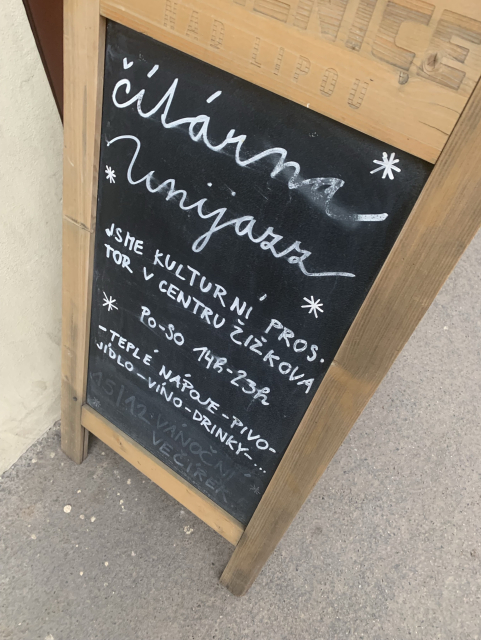 čítárna
Unijazz
JSME KULTURNÍ PROS.
TOR V CENTRU ŽIŽKOVA
PO-SO 14h-23h
-TEPLÉ NÁPOJE-PIVO-
JÍDLO-VÍNO-DRINKY-...
15/12 VÁNOČNÍ
VEČÍREK